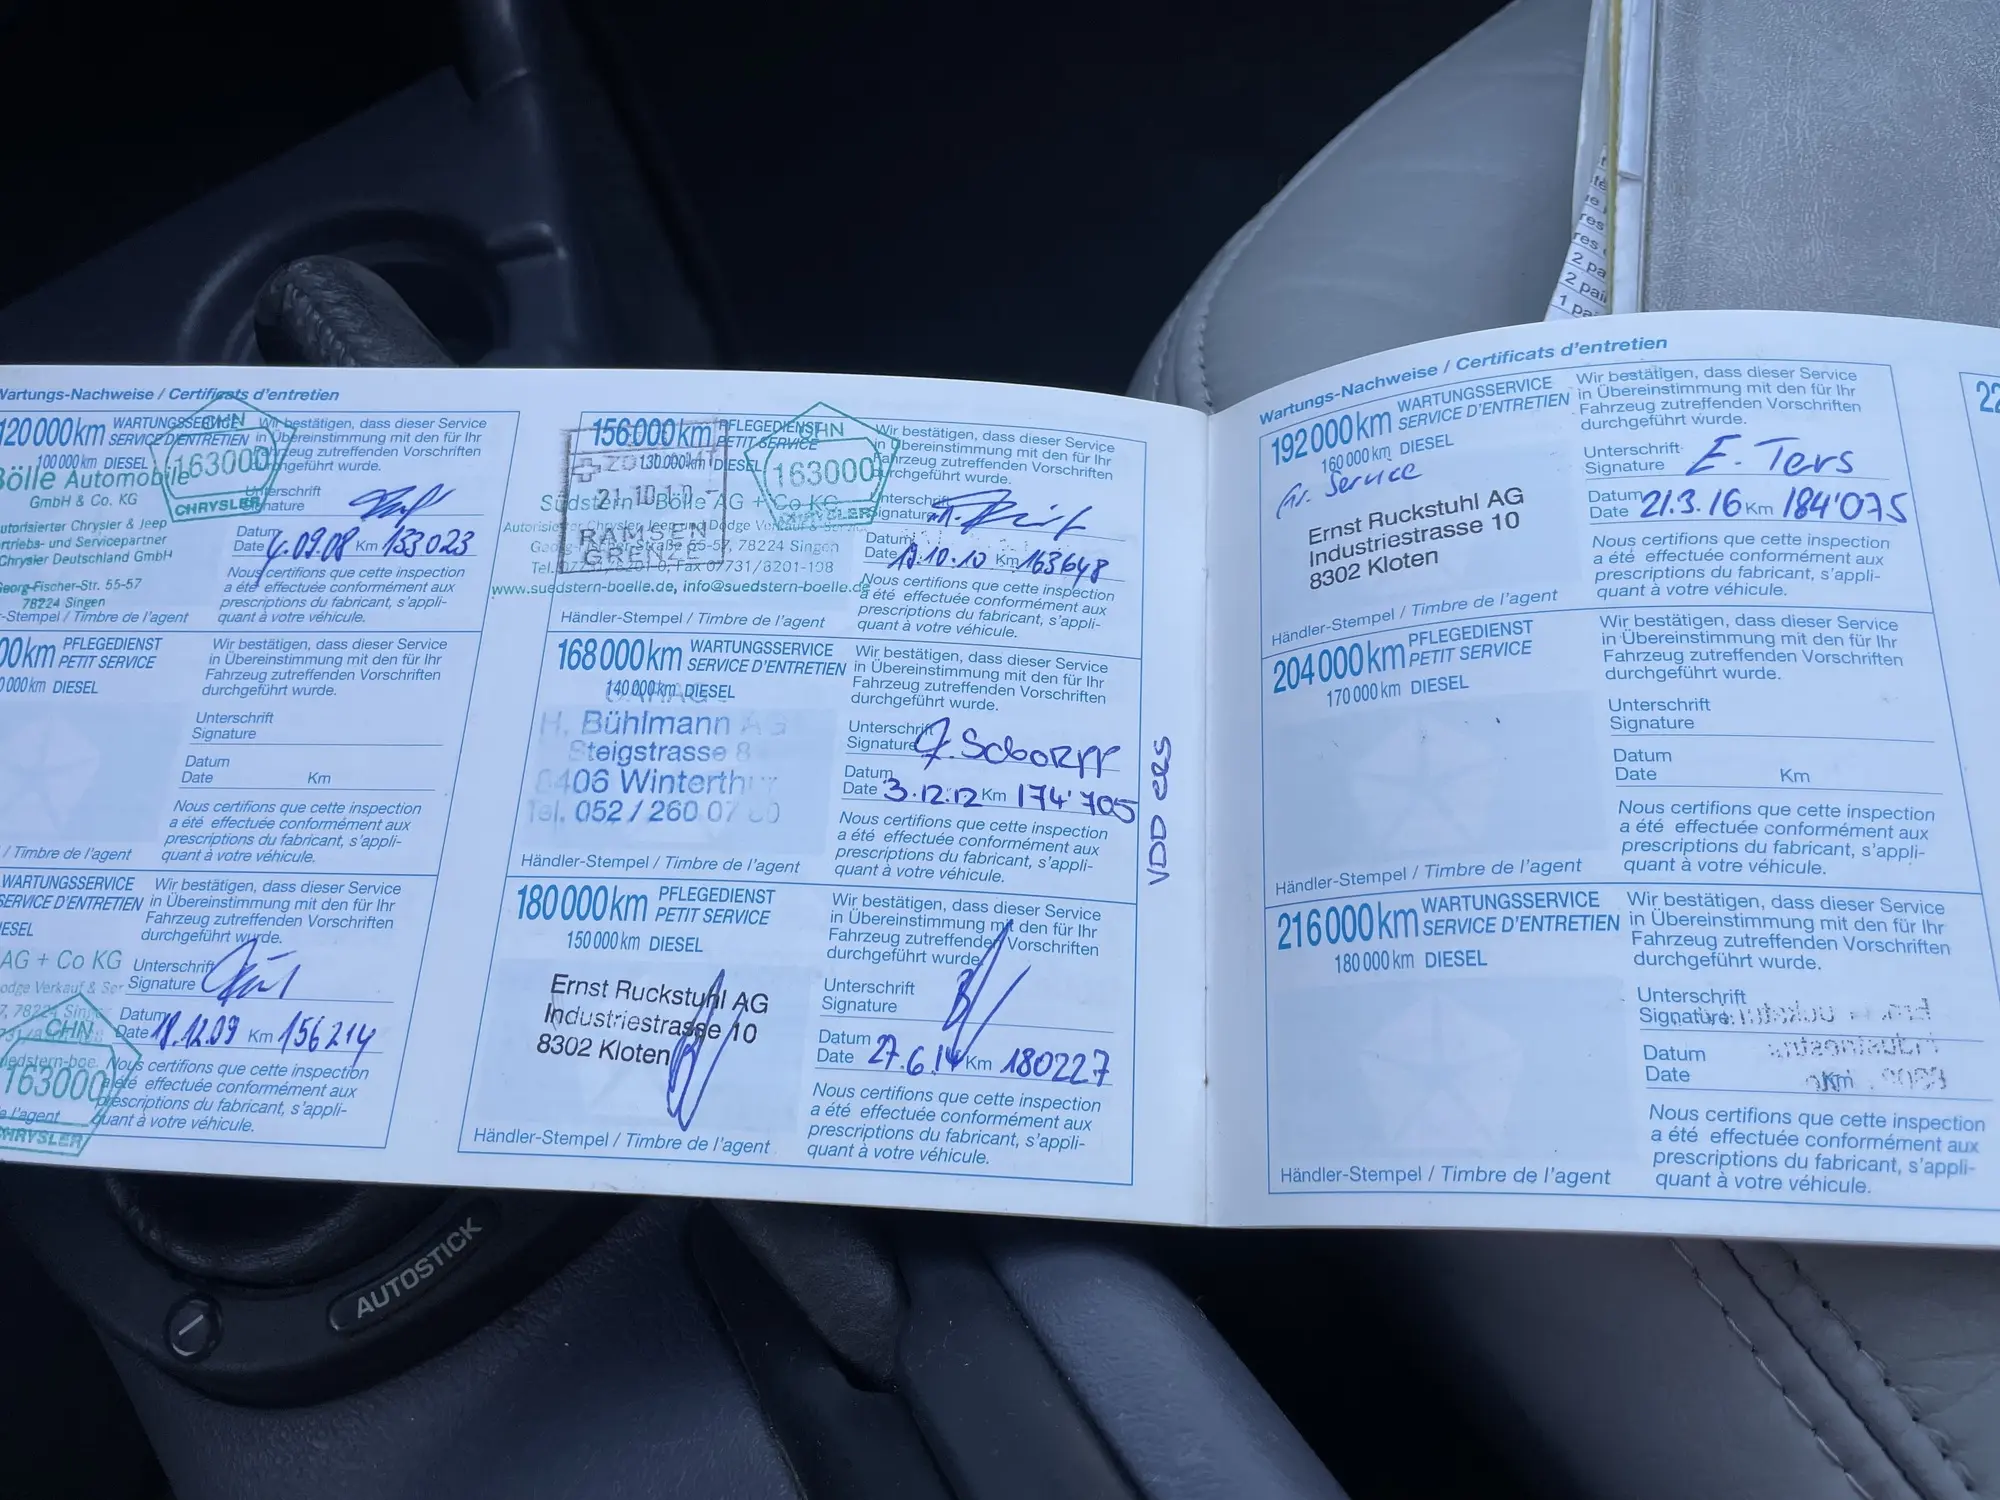 Wartungs-Nachweise / Certificats d'entretien
120 000 km WARTUNGSSERVICE
SERVICE D'ENTRETIEN
100 000 km DIESEL
Bölle Automobile
GmbH & Co. KG
Chrysler & Jeep
und Servicepartner
Chrysler Deutschland GmbH
Georg-Fischer-Str. 55-57
78224 Singen
-Stempel / Timbre de l'agent
CHN
163000
CHRYSLER
Wir bestätigen, dass dieser Service
in Übereinstimmung mit den für Ihr
Fahrzeug zutreffenden Vorschriften
durchgeführt wurde.
Unterschrift
Signature
Datum
Date 4.09.08 Km 133023
Nous certifions que cette inspection
a été effectuée conformément aux
prescriptions du fabricant, s'appli-
quant à votre véhicule.
00 km PFLEGEDIENST
PETIT SERVICE
0 000 km DIESEL
/ Timbre de l'agent
Wir bestätigen, dass dieser Service
in Übereinstimmung mit den für Ihr
Fahrzeug zutreffenden Vorschriften
durchgeführt wurde.
Unterschrift
Signature
Datum
Date Km
Nous certifions que cette inspection
a été effectuée conformément aux
prescriptions du fabricant, s'appli-
quant à votre véhicule.
WARTUNGSSERVICE
SERVICE D'ENTRETIEN
ESEL
AG + Co KG
odge Verkauf & Ser
7, 78224 Sing
CHN
163000
CHRYSLER
l'agent
Wir bestätigen, dass dieser Service
in Übereinstimmung mit den für Ihr
Fahrzeug zutreffenden Vorschriften
durchgeführt wurde.
Unterschrift
Signature
Datum
Date 18.12.09 Km 156214
Nous certifions que cette inspection
a été effectuée conformément aux
prescriptions du fabricant, s'appli-
quant à votre véhicule.
156 000 km PFLEGEDIENST
PETIT SERVICE
130 000 km DIESEL
21.10.10
RAMSEN
GRENZE
CHN
163000
CHRYSLER
Südstern - Bölle AG + Co KG
Georg-Fischer-Straße 65-57, 78224 Singen
Tel. 07731/8201-0, Fax 07731/8201-108
www.suedstern-boelle.de, info@suedstern-boelle.de
Händler-Stempel / Timbre de l'agent
Wir bestätigen, dass dieser Service
in Übereinstimmung mit den für Ihr
Fahrzeug zutreffenden Vorschriften
durchgeführt wurde.
Unterschrift
Signature
Datum
Date 19.10.10 Km 163648
Nous certifions que cette inspection
a été effectuée conformément aux
prescriptions du fabricant, s'appli-
quant à votre véhicule.
168 000 km WARTUNGSSERVICE
SERVICE D'ENTRETIEN
140 000 km DIESEL
GARAGE
H. Bühlmann AG
Steigstrasse 8
8406 Winterthur
Tel. 052 / 260 07 80
Händler-Stempel / Timbre de l'agent
Wir bestätigen, dass dieser Service
in Übereinstimmung mit den für Ihr
Fahrzeug zutreffenden Vorschriften
durchgeführt wurde.
Unterschrift
Signature J. Schorpp
Datum
Date 3.12.12 Km 174'705
Nous certifions que cette inspection
a été effectuée conformément aux
prescriptions du fabricant, s'appli-
quant à votre véhicule.
180 000 km PFLEGEDIENST
PETIT SERVICE
150 000 km DIESEL
Ernst Ruckstuhl AG
Industriestrasse 10
8302 Kloten
Händler-Stempel / Timbre de l'agent
Wir bestätigen, dass dieser Service
in Übereinstimmung mit den für Ihr
Fahrzeug zutreffenden Vorschriften
durchgeführt wurde.
Unterschrift
Signature
Datum
Date 27.6.14 Km 180227
Nous certifions que cette inspection
a été effectuée conformément aux
prescriptions du fabricant, s'appli-
quant à votre véhicule.
Wartungs-Nachweise / Certificats d'entretien
192 000 km WARTUNGSSERVICE
SERVICE D'ENTRETIEN
160 000 km DIESEL
Gr. Service
Ernst Ruckstuhl AG
Industriestrasse 10
8302 Kloten
Händler-Stempel / Timbre de l'agent
Wir bestätigen, dass dieser Service
in Übereinstimmung mit den für Ihr
Fahrzeug zutreffenden Vorschriften
durchgeführt wurde.
Unterschrift
Signature E. Ters
Datum
Date 21.3.16 Km 184'075
Nous certifions que cette inspection
a été effectuée conformément aux
prescriptions du fabricant, s'appli-
quant à votre véhicule.
204 000 km PFLEGEDIENST
PETIT SERVICE
170 000 km DIESEL
Händler-Stempel / Timbre de l'agent
Wir bestätigen, dass dieser Service
in Übereinstimmung mit den für Ihr
Fahrzeug zutreffenden Vorschriften
durchgeführt wurde.
Unterschrift
Signature
Datum
Date Km
Nous certifions que cette inspection
a été effectuée conformément aux
prescriptions du fabricant, s'appli-
quant à votre véhicule.
216 000 km WARTUNGSSERVICE
SERVICE D'ENTRETIEN
180 000 km DIESEL
Händler-Stempel / Timbre de l'agent
Wir bestätigen, dass dieser Service
in Übereinstimmung mit den für Ihr
Fahrzeug zutreffenden Vorschriften
durchgeführt wurde.
Unterschrift
Signature
Datum
Date Km
Nous certifions que cette inspection
a été effectuée conformément aux
prescriptions du fabricant, s'appli-
quant à votre véhicule.
22
2 pa
2 pair
1 pa
AUTOSTICK